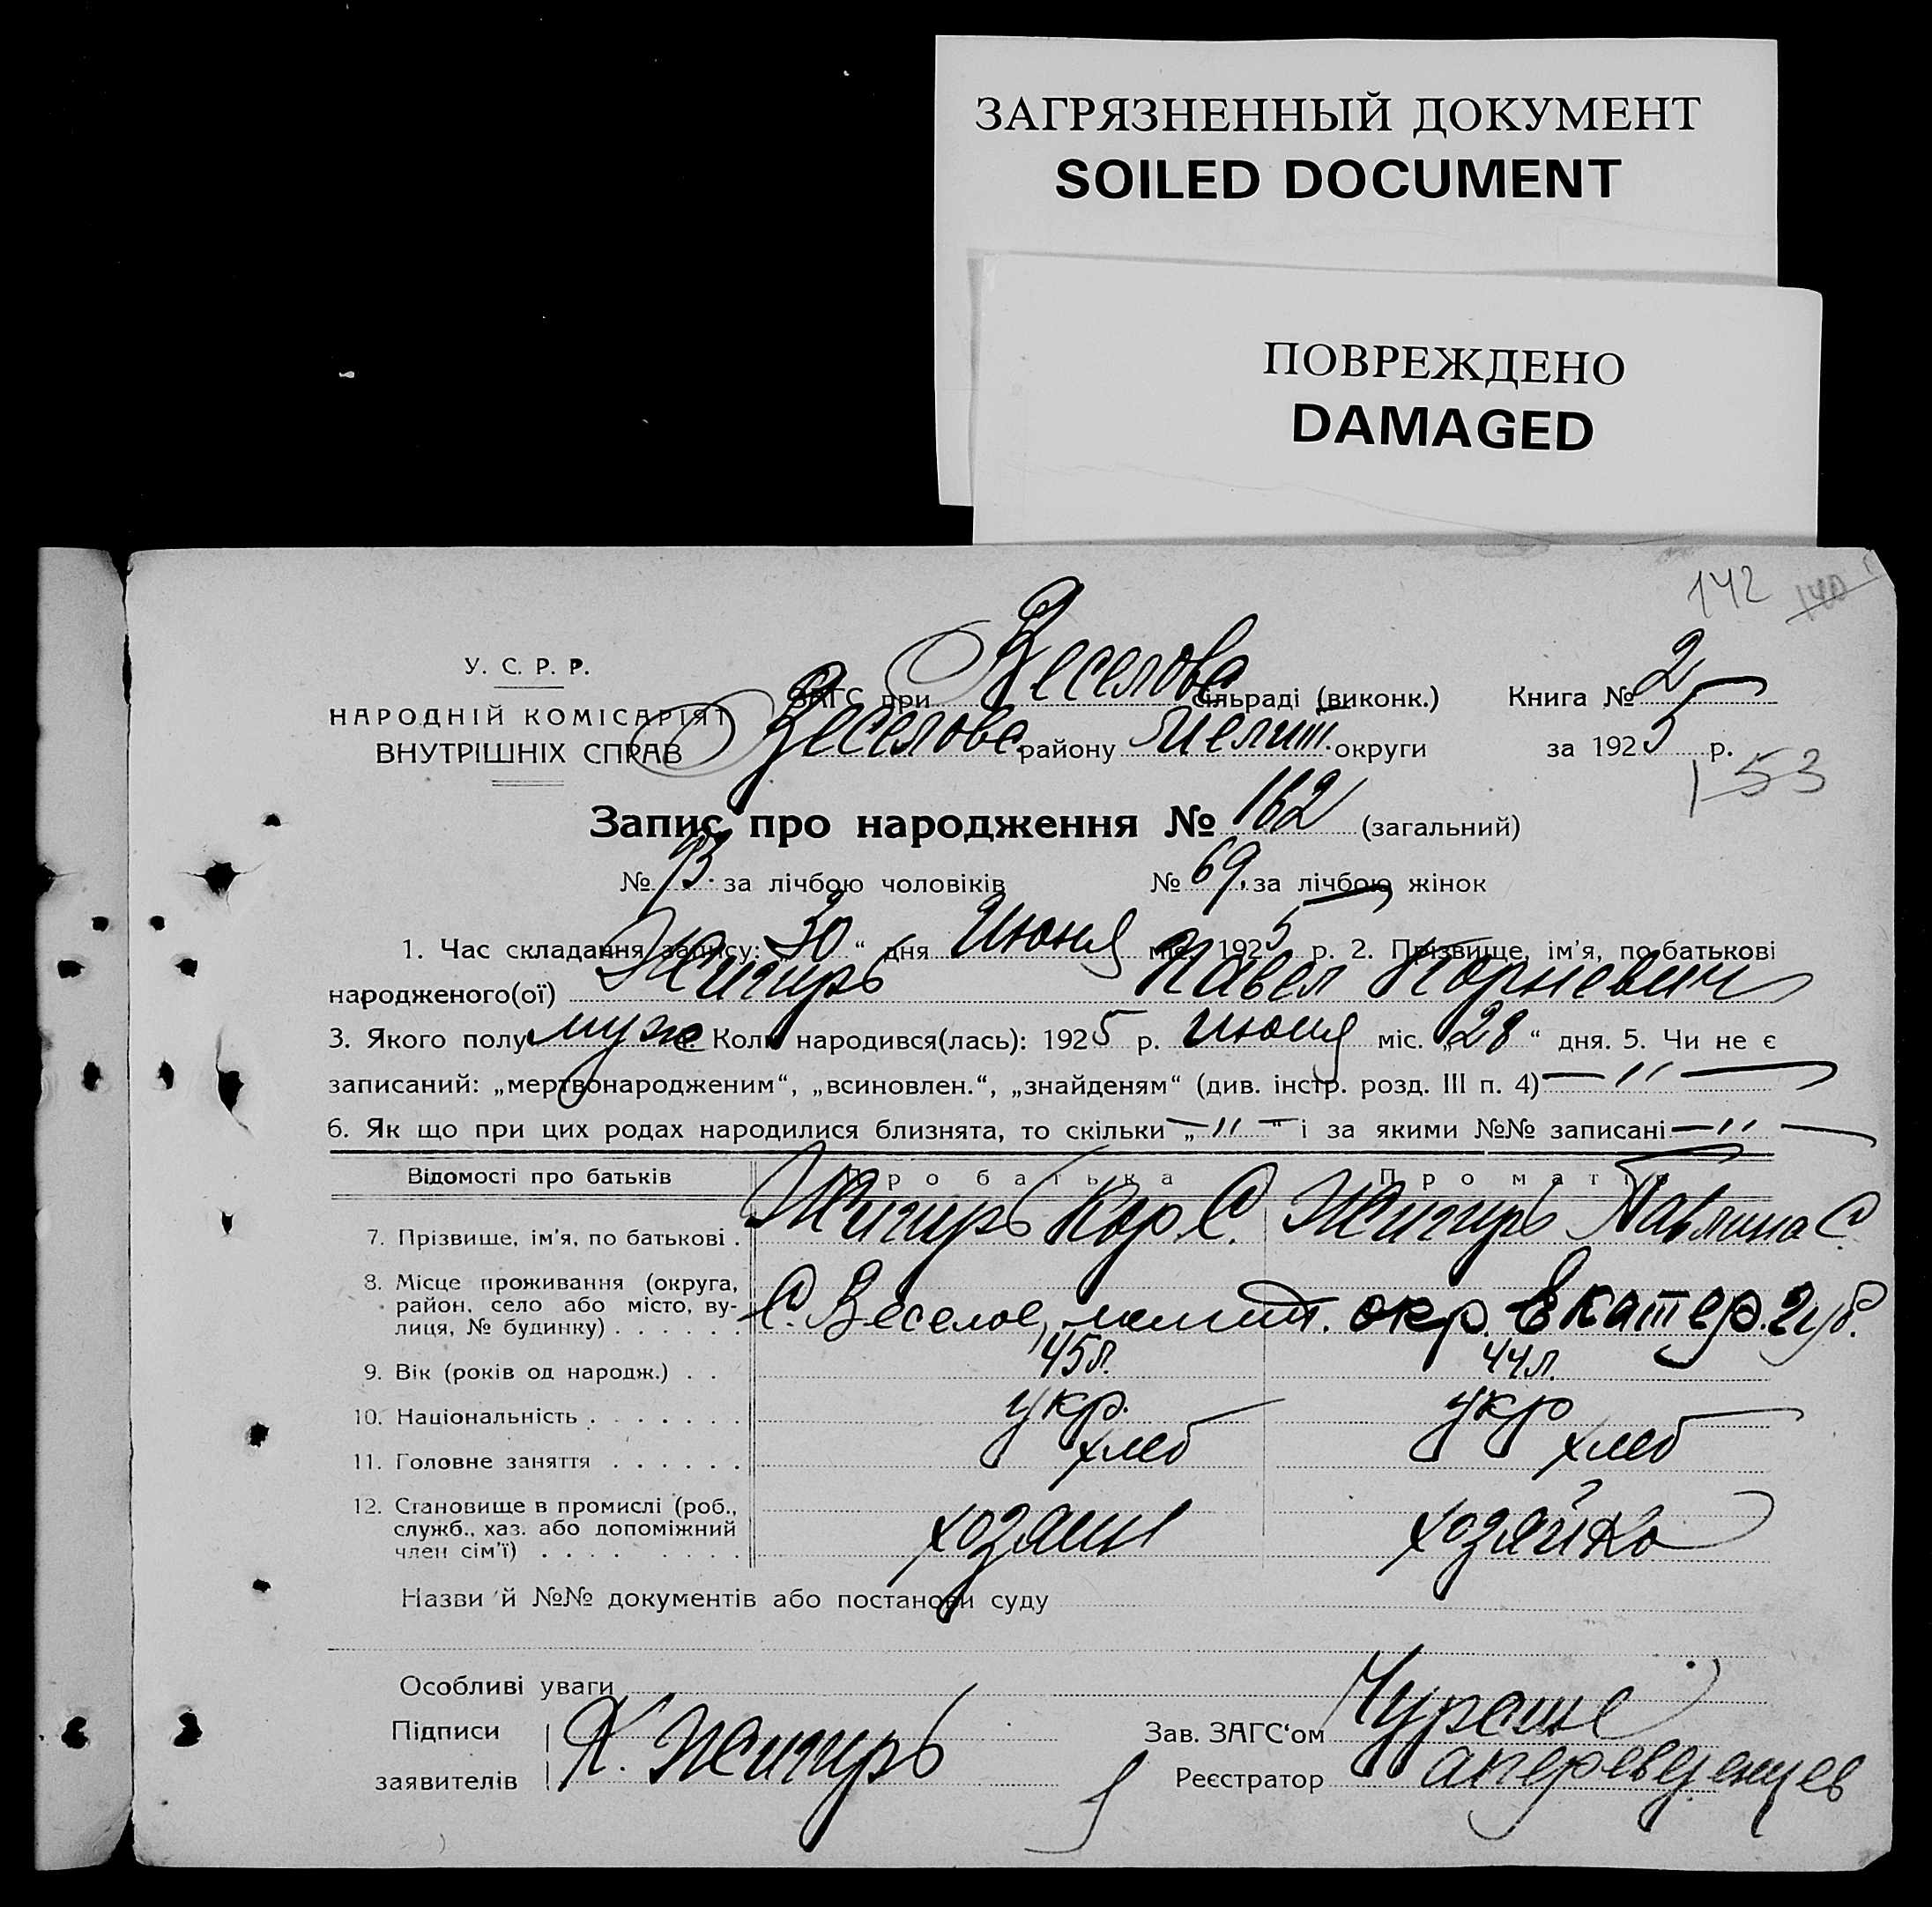 ЗАГРЯЗНЕННЫЙ ДОКУМЕНТ
SOILED DOCUMENT
ПОВРЕЖДЕНО
DAMAGED
142 140
У. С. Р. Р.
НАРОДНІЙ КОМІСАРІЯТ
ВНУТРІШНІХ СПРАВ
ЗАГС при Веселов сільраді (виконк.) Книга № 2
Веселов району Мелит. округи за 1925 р.
153
Запис про народження № 162 (загальний)
№ 93. за лічбою чоловіків № 69. за лічбою жінок
1. Час складання запису: „30“ дня Июня міс. 1925 р. 2. Прізвище, ім’я, по батькові
народженого(ої) Жигирь Павел Корневич
3. Якого полу муж. Коли народився(лась): 1925 р. Июня міс. „28“ дня. 5. Чи не є
записаний: „мертвонародженим“, „всиновлен.“, „знайденям“ (див. інстр. розд. III п. 4) — '' —
6. Як що при цих родах народилися близнята, то скільки „— '' —“ і за якими №№ записані — '' —
Відомості про батьків Про батька Про матір
7. Прізвище, ім’я, по батькові . Жигирь Кор. С. Жигирь Павлина С.
8. Місце проживання (округа,
район, село або місто, ву-
лиця, № будинку) . . . . . . С. Веселое, мелит. окр. Екатер. губ.
9. Вік (років од народж.) . . 45 л. 44 л.
10. Національність . . . . . . . укр. укр
11. Головне заняття . . . . . . хлеб хлеб
12. Становище в промислі (роб.,
служб., хаз. або допоміжний
член сім’ї) . . . . . . . . . хозяин хозяйка
Назви й №№ документів або постанови суду
Особливі уваги
Підписи
заявителів К. Жигирь
Зав. ЗАГС‘ом
Реєстратор